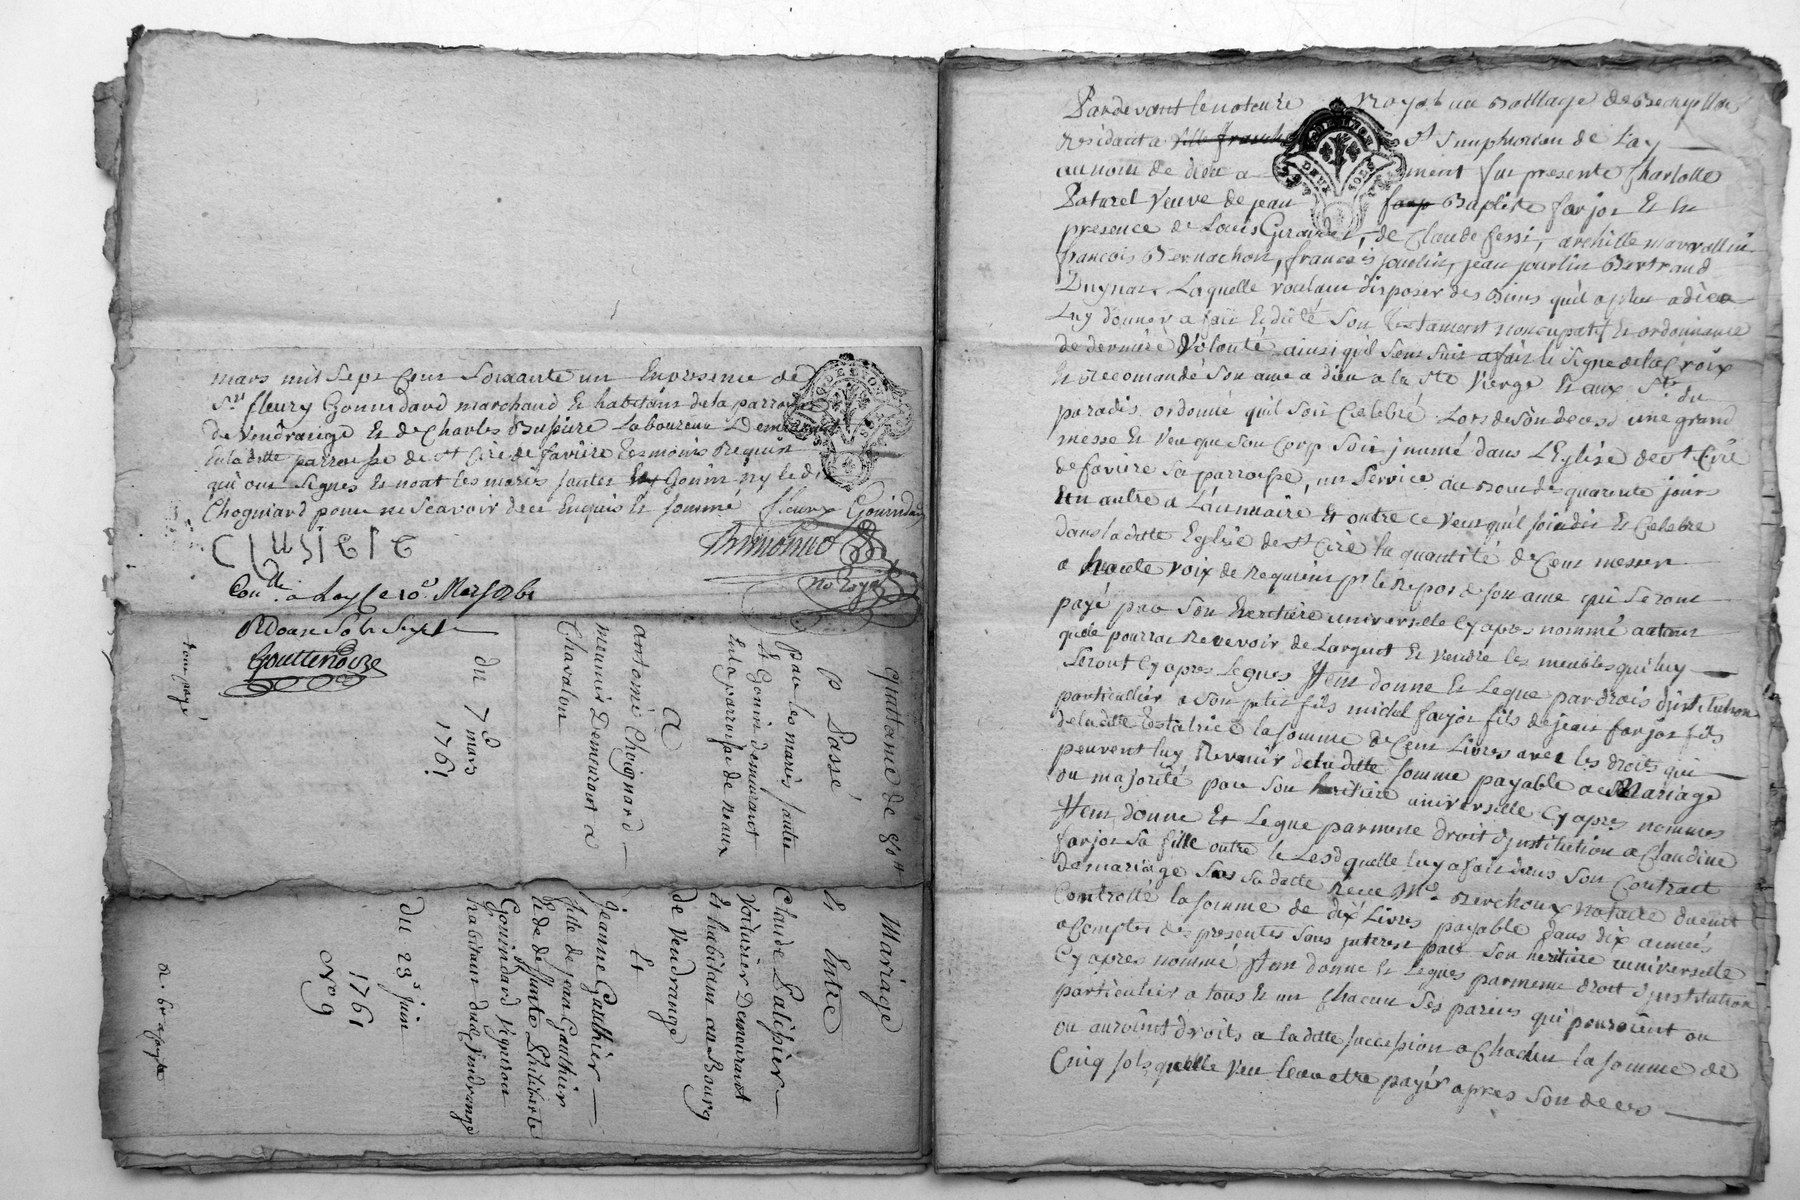 mars mil sept cens soixante un En presence de
Sr fleury Gouindard marchand et habitant de la parroisse
de Vendrange et de Charles Bussiere Laboureur Demeurant
en la ditte parroisse de st Ciré de faviere temoins Requis
qui ont signés et non les mariés jautes Gouin ny le dt
Chogniard pour ne scavoir de ce Enquis et sommé fleury Gouindard
C BUSIERE
no Royal
Conlle a Lay le 10e Mars 1761
Gouttenoize
tout payé
quittance de 80tt
Passé
par les mariés jautes
et Gouin demeurant
en la parroisse de neaux
A
antoine Choignard
meunier Demeurant a
Chavalon
Du 7e mars
1761
Mariage
Entre
Claude Palissier
Voiturier Demeurant
et habitant au Bourg
de Vendrange
Et
jeanne Gauthier
fille de jean Gauthier
et de deffunte Philiberte
Gouindard Vigneron
habitant dud Vendrange
Du 23e juin
1761
No 9
Par devant le notaire Royal au Balliage de Beaujollois
Residant a ville franche st Simphorien de Lay
au nom de dieu a ment fut presente Charlotte
Paturel Veuve de jean Baptiste farjot Et en
presence de Louis Giraudet, de Claude fessi, archille
françois Bernachon, francois jourlin, jean jourlin Bertrand
Duynat Laquelle voulant disposer des Biens qu'il a plu a dieu
Luy donner a fait et dicté son Testament noncupatif et ordonnance
de derniere Volonté ainsi qu'il sens suit a fait le signe de la Croix
et recomandé son ame a dieu a la Ste Vierge et aux Sts du
paradis ordonné qu'il soit Celebré Lors de son deces une grand
messe et veu que son Corp soit jnumé dans L'Eglise de st Ciré
de faviere sa parroisse, un Service au Bout de quarente jours
Un autre a L'annuaire et outre ce veut qu'il soit dit et Celebré
dans la ditte Eglise de st Ciré la quantité de Cent messes
a haute voix de Requiem pr le Repos de son ame qui seront
payé par son heritiere universelle Cy apres nommé autant
quelle pourra Recevoir de Largent et vendre les meubles qui luy
seront Cy apres Legués Item donne et Legue par droit d'institution
particullier a son petit fils michel farjot fils de jean farjot fils
de la ditte testatrice la somme de Cent Livres avec les droits qui
peuvent luy Revenir de la ditte somme payable a Mariage
ou majorité par son heritiere universelle Cy apres nommés
Item donne et Legue par meme droit d'institution a Claudine
farjot sa fille outre le Les quelle luy a fait dans son Contract
de mariage sous sa datte Receu Me Berchoux Notaire duemt
Controllé la somme de dix Livres payable dans dix années
a Compter des presentes sans juterest par son heritiere universelle
Cy apres nommé Item donne et Legues par meme droit d'institution
particulier a tous et un Chacun ses parens qui pouroient ou
ou auroint droits a la ditte succession a Chacun la somme de
Cinq sols quelle veu leur etre payés apres son deces